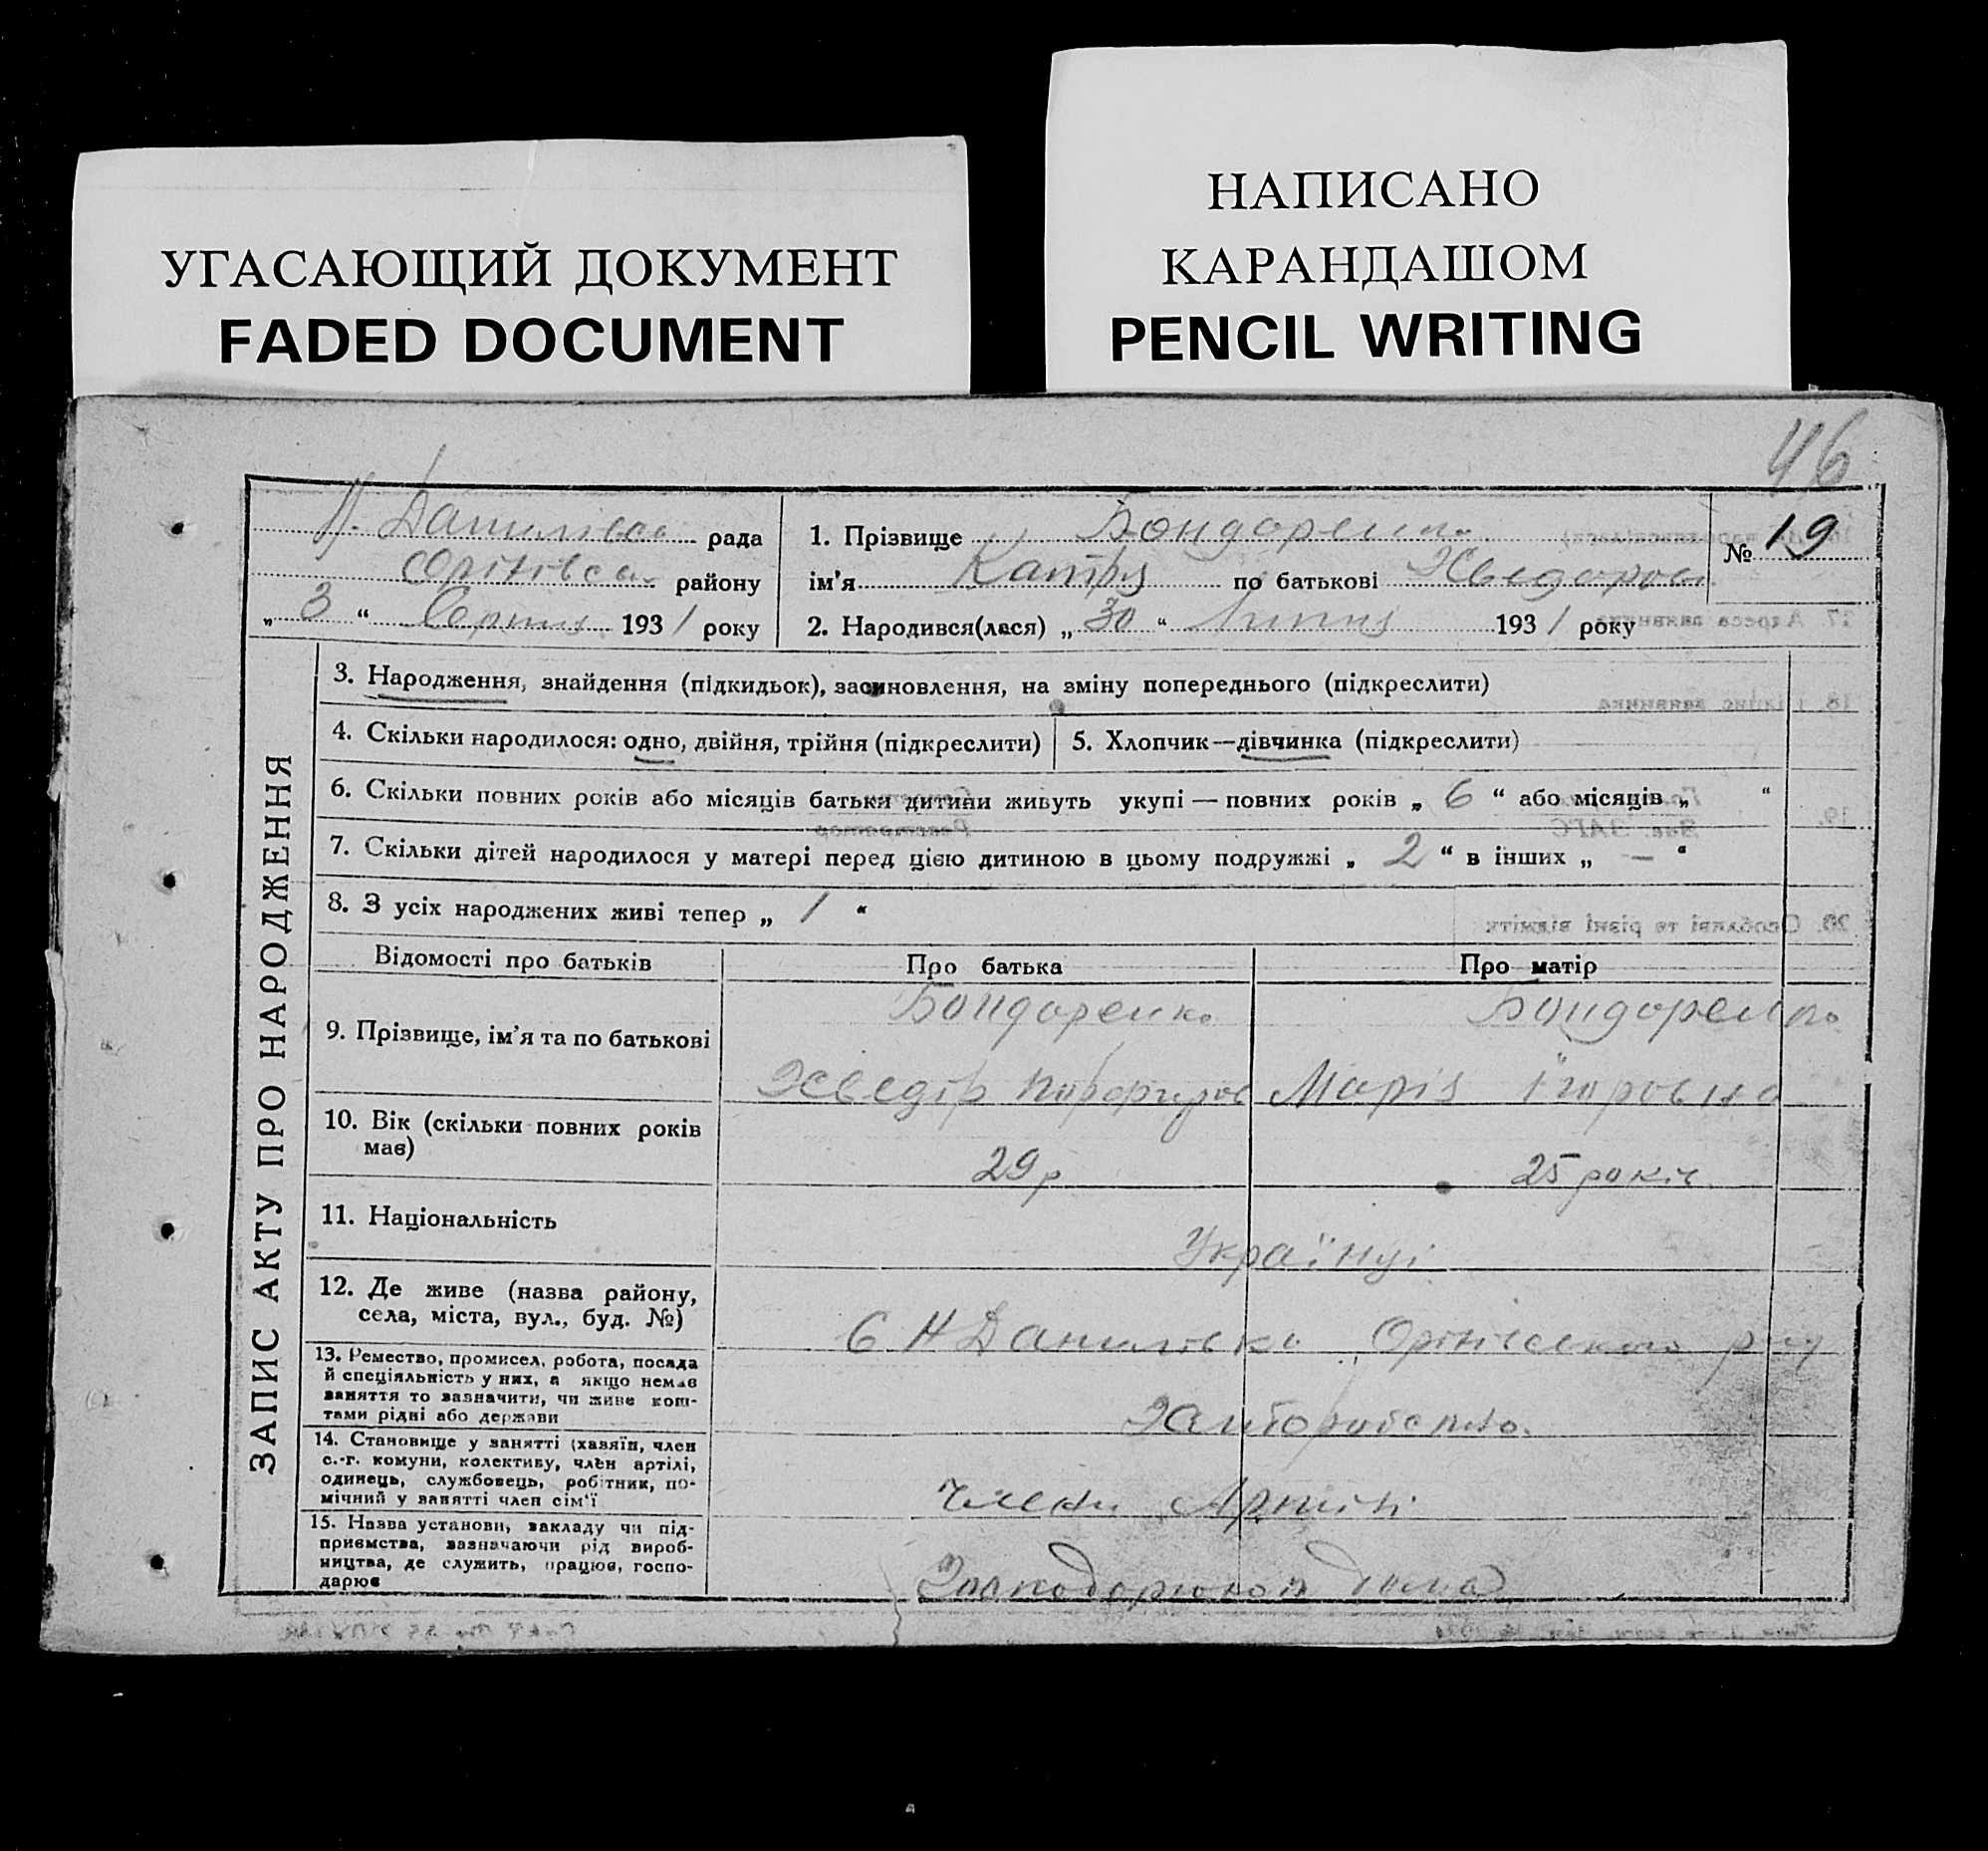 УГАСАЮЩИЙ ДОКУМЕНТ
FADED DOCUMENT
НАПИСАНО
КАРАНДАШОМ
PENCIL WRITING
46
Н. Данилівсь рада
Орініївсь району
„ 3 “ Серпня 1931 року
1. Прізвище Бондаренко
ім'я Катря по батькові Хведоров
№ 19
2. Народився(лася) „ 30 “ Липня 1931 року
ЗАПИС АКТУ ПРО НАРОДЖЕННЯ
3. Народження, знайдення (підкидьок), засиновлення, на зміну попереднього (підкреслити)
4. Скільки народилося: одно, двійня, трійня (підкреслити)
5. Хлопчик—дівчинка (підкреслити)
6. Скільки повних років або місяців батьки дитини живуть укупі — повних років „ 6 “ або місяців „ “
7. Скільки дітей народилося у матері перед цією дитиною в цьому подружжі „ 2 “ в інших „ — “
8. З усіх народжених живі тепер „ 1 “
Відомості про батьків
Про батька
Про матір
9. Прізвище, ім'я та по батькові
Бондаренко
Хведір Порфиров
Бондаренко
Марія Ігоровна
10. Вік (скільки повних років
має)
29 р
25 років
11. Національність
Українці
12. Де живе (назва району,
села, міста, вул., буд. №)
С Н Данилівка
13. Ремество, промисел, робота, посада
й спеціяльність у них, а якщо немає
заняття то зазначити, чи живе кош-
тами рідні або держави
Хліборобство.
14. Становище у занятті (хазяїн, член
с.-г. комуни, колективу, член артілі,
одинець, службовець, робітник, по-
мічний у занятті член сім'ї
Члени Артілі
15. Назва установи, закладу чи під-
приємства, зазначаючи рід вироб-
ництва, де служить, працює, госпо-
дарює